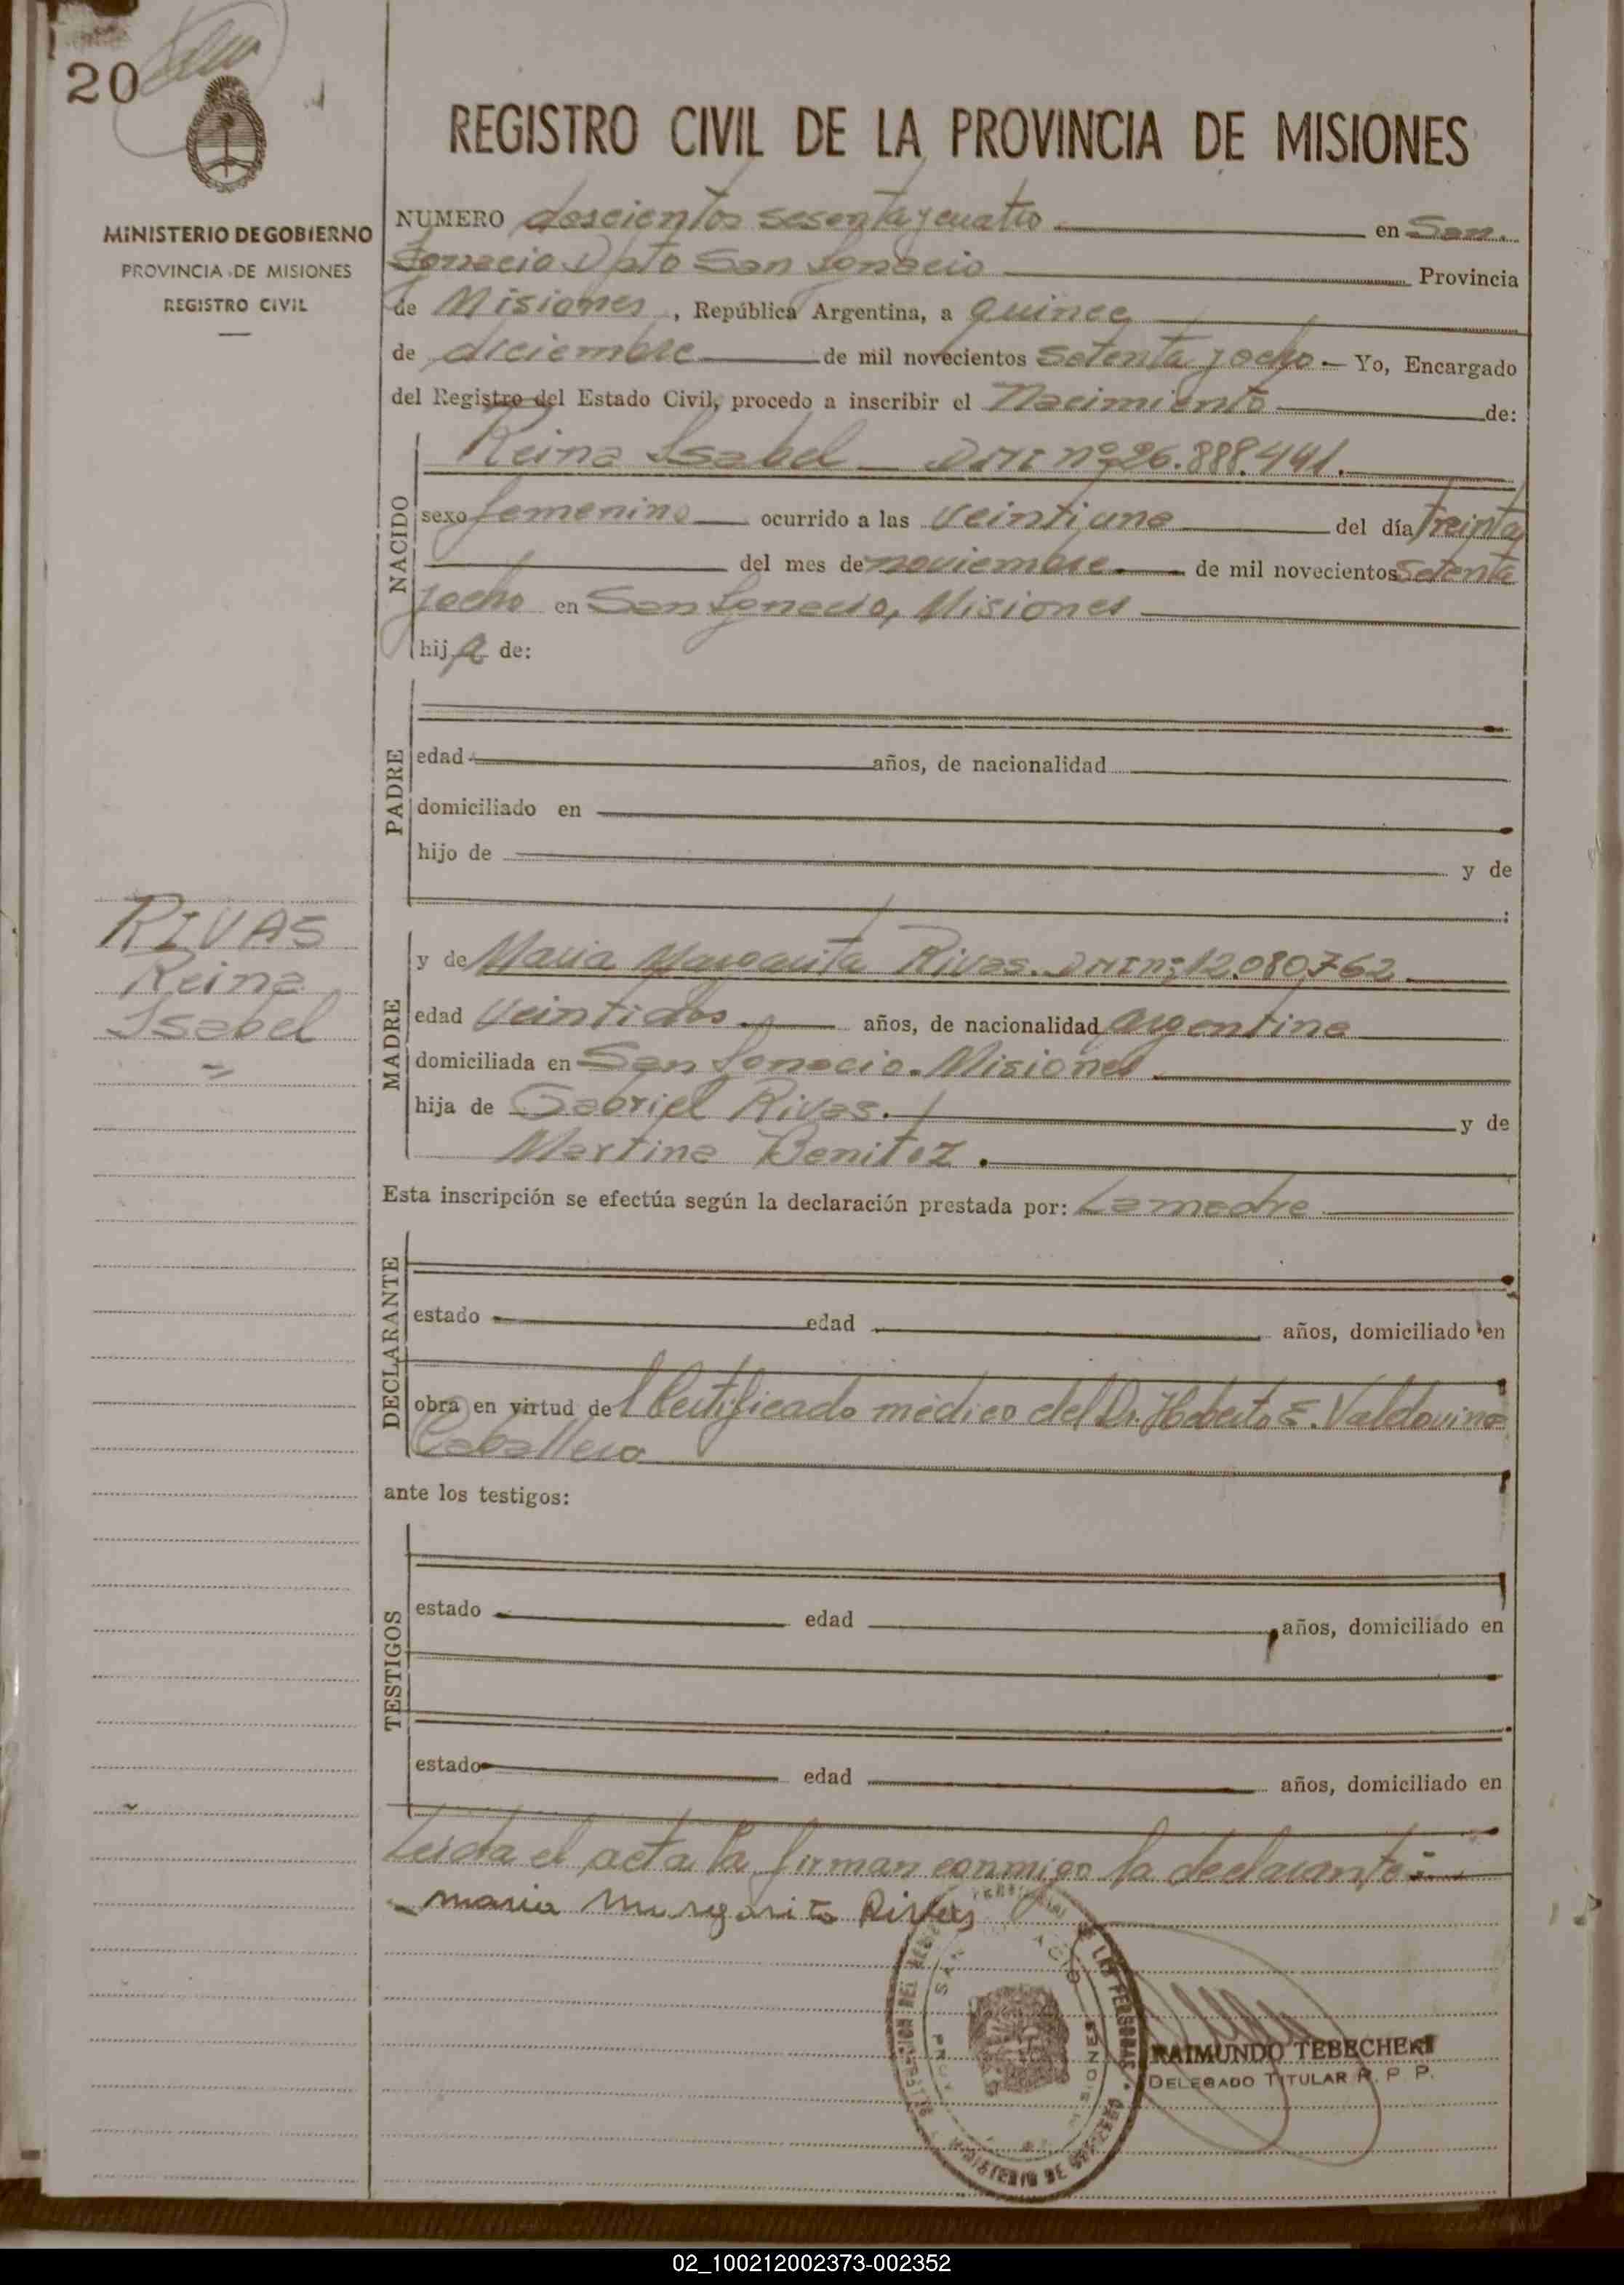 20
MINISTERIO DE GOBIERNO
PROVINCIA DE MISIONES
REGISTRO CIVIL
REGISTRO CIVIL DE LA PROVINCIA DE MISIONES
NUMERO doscientos sesenta y cuatro en San
Ignacio Dpto San Ignacio Provincia
de Misiones, República Argentina, a quince
de diciembre de mil novecientos setenta y ocho Yo, Encargado
del Registro del Estado Civil, procedo a inscribir el Nacimiento de:
NACIDO
Reina Isabel DNI nº 26.888.441.
sexo femenino ocurrido a las veintiuna del día treinta
del mes de noviembre de mil novecientos setenta
y ocho en San Ignacio, Misiones
hija de:
PADRE
edad años, de nacionalidad
domiciliado en
hijo de y de
RIVAS
Reina
Isabel
MADRE
y de Maria Margarita Rivas. DNI nº 12.080.762
edad veintidos años, de nacionalidad argentina
domiciliada en San Ignacio. Misiones
hija de Gabriel Rivas. y de
Martina Benitez.
Esta inscripción se efectúa según la declaración prestada por: La madre
DECLARANTE
estado edad años, domiciliado en
obra en virtud del Certificado médico del Dr. E. Valdovino
Caballero
ante los testigos:
TESTIGOS
estado edad años, domiciliado en
estado edad años, domiciliado en
Leida el acta la firman conmigo la declarante
maria margarita Rivas
DE LAS PERSONAS
MINISTERIO DE GOBIERNO
RAIMUNDO TEBECHERI
DELEGADO TITULAR R. P. P.
02_100212002373-002352